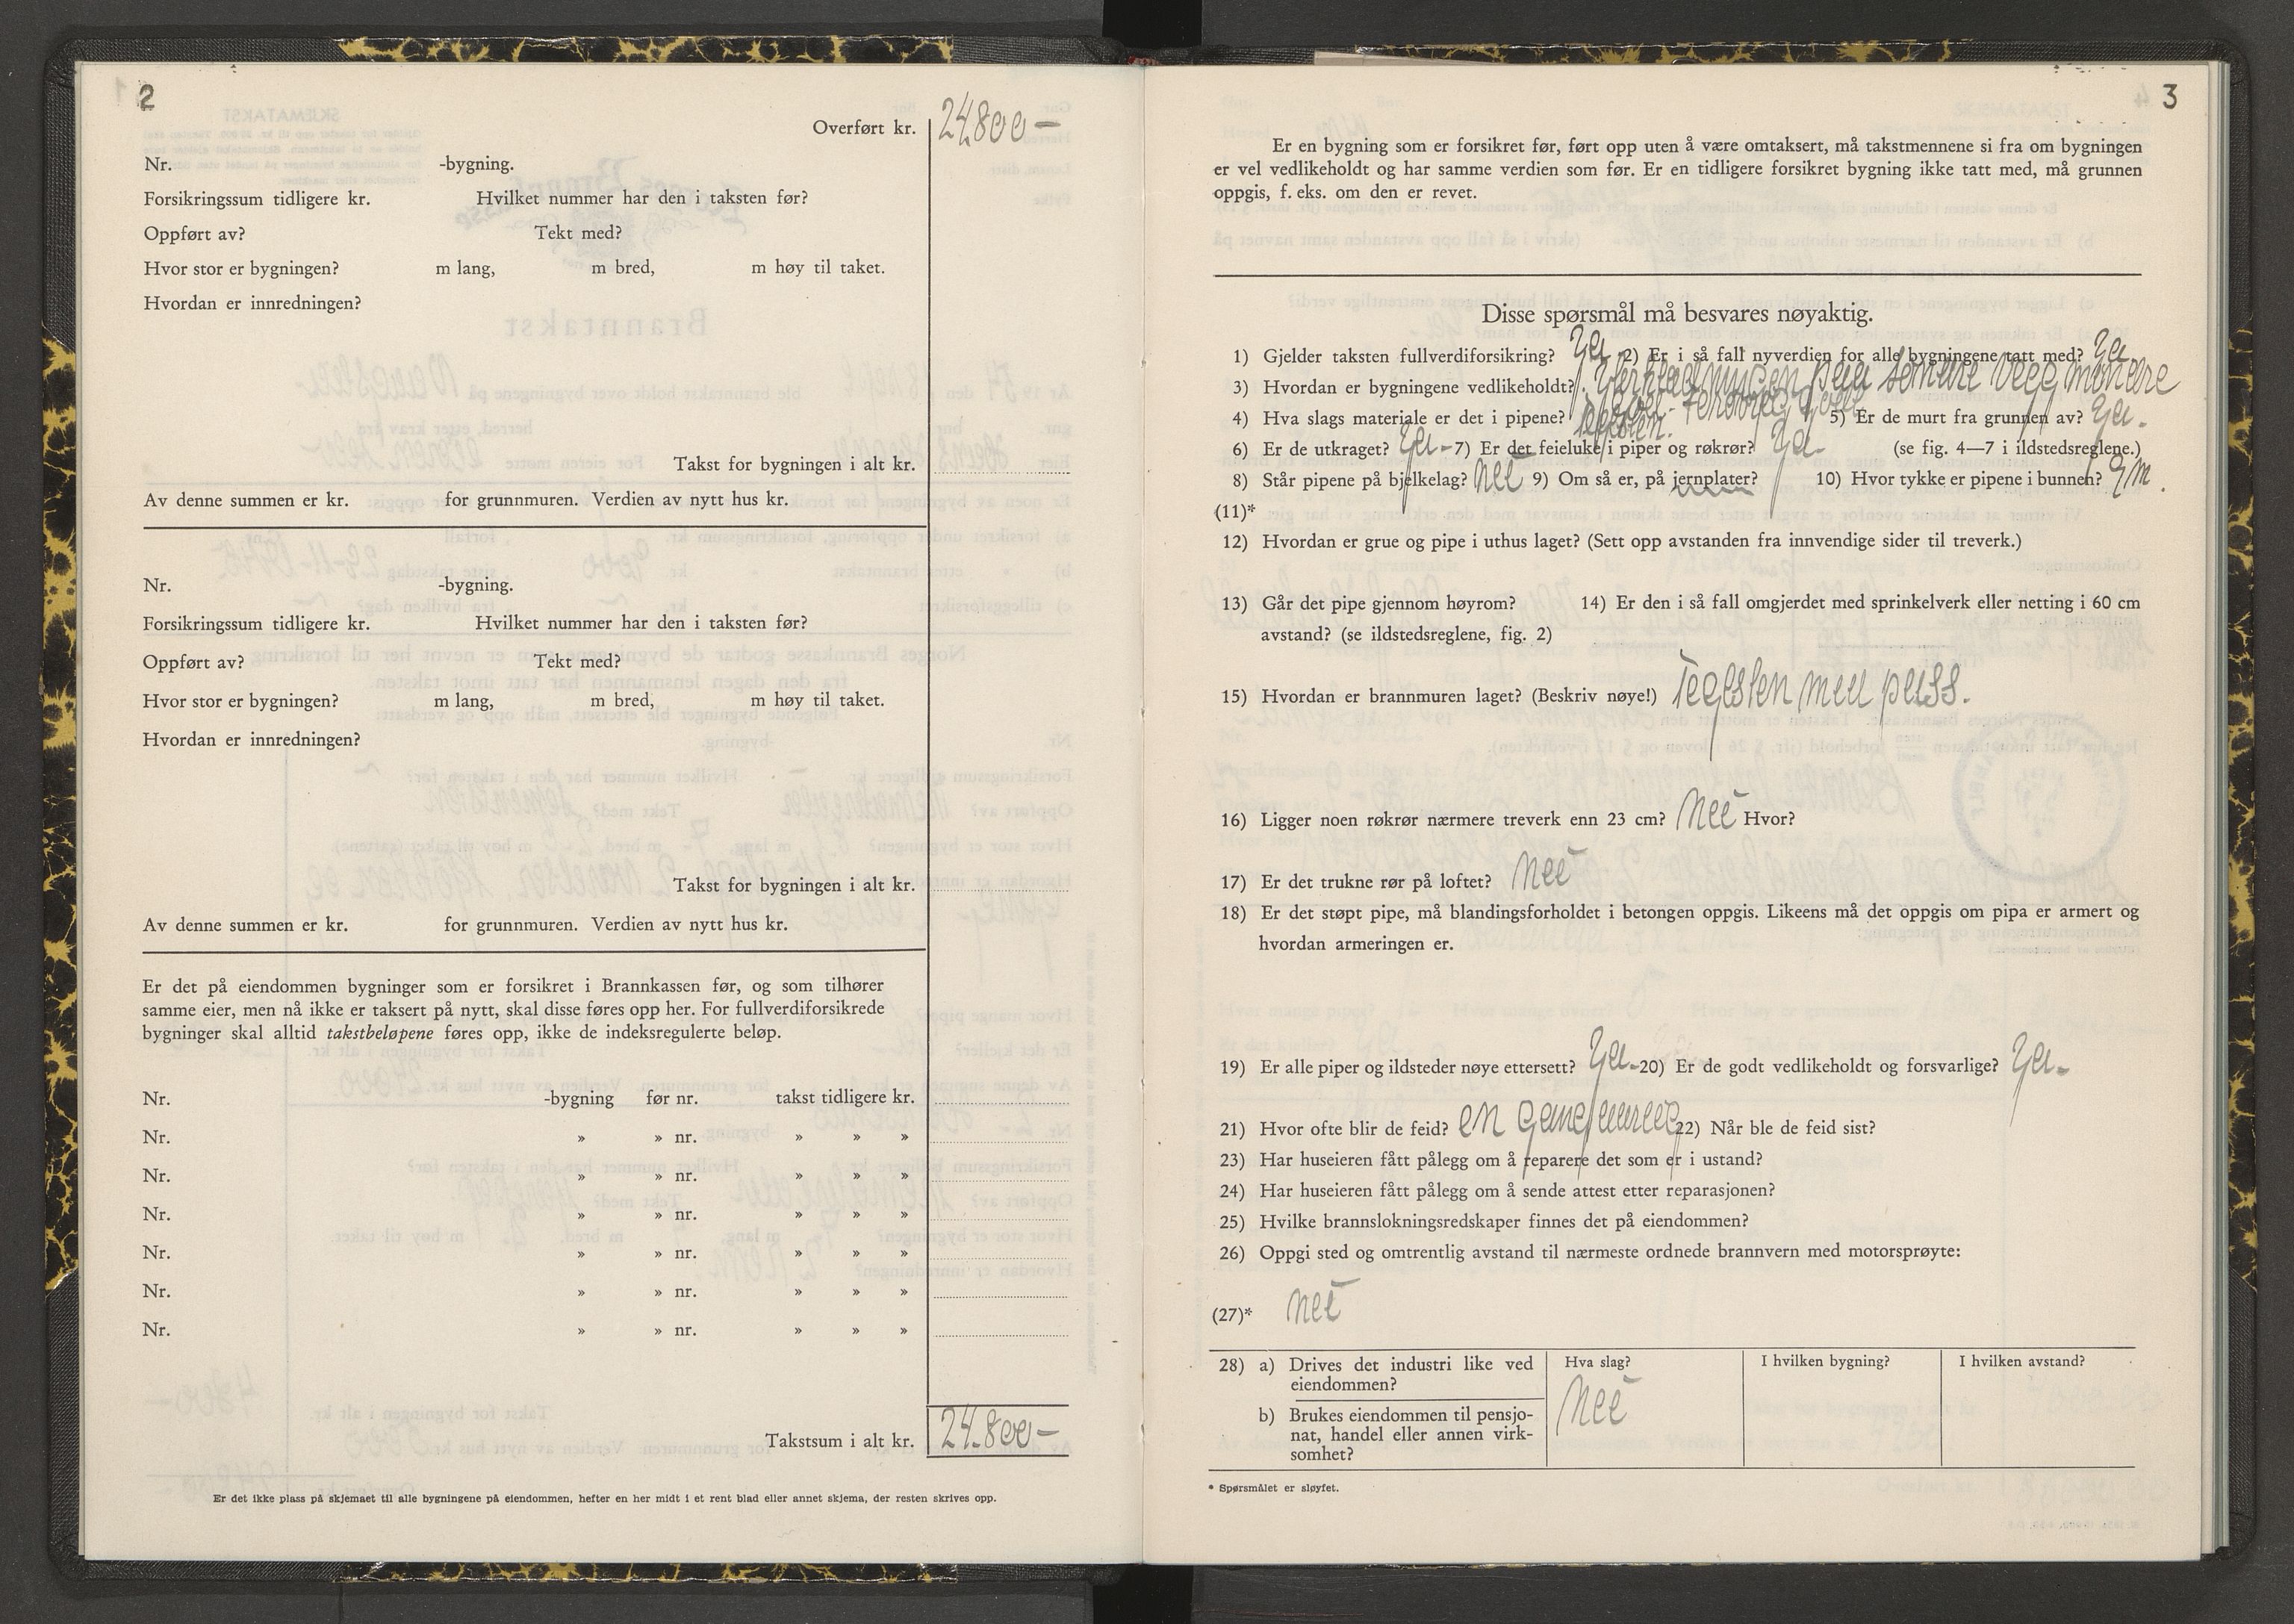 2
Overført kr. 24.800 —
Nr. -bygning.
Forsikringssum tidligere kr. Hvilket nummer har den i taksten før?
Oppført av? Tekt med?
Hvor stor er bygningen? m lang, m bred, m høy til taket.
Hvordan er innredningen?
Takst for bygningen i alt kr.
Av denne summen er kr. for grunnmuren. Verdien av nytt hus kr.
Nr. -bygning.
Forsikringssum tidligere kr. Hvilket nummer har den i taksten før?
Oppført av? Tekt med?
Hvor stor er bygningen? m lang, m bred, m høy til taket.
Hvordan er innredningen?
Takst for bygningen i alt kr.
Av denne summen er kr. for grunnmuren. Verdien av nytt hus kr.
Er det på eiendommen bygninger som er forsikret i Brannkassen før, og som tilhører
samme eier, men nå ikke er taksert på nytt, skal disse føres opp her. For fullverdiforsikrede
bygninger skal alltid takstbeløpene føres opp, ikke de indeksregulerte beløp.
Nr. -bygning før nr. takst tidligere kr.
Nr. » » nr. » » »
Nr. » » nr. » » »
Nr. » » nr. » » »
Nr. » » nr. » » »
Nr. » » nr. » » »
Nr. » » nr. » » »
Takstsum i alt kr. 24.800 —
Er det ikke plass på skjemaet til alle bygningene på eiendommen, hefter en her midt i et rent blad eller annet skjema, der resten skrives opp.
3
Er en bygning som er forsikret før, ført opp uten å være omtaksert, må takstmennene si fra om bygningen
er vel vedlikeholdt og har samme verdien som før. Er en tidligere forsikret bygning ikke tatt med, må grunnen
oppgis, f. eks. om den er revet.
Disse spørsmål må besvares nøyaktig.
1) Gjelder taksten fullverdiforsikring? Ja 2) Er i så fall nyverdien for alle bygningene tatt med? Ja
3) Hvordan er bygningene vedlikeholdt? paa søndre vegg mindre
4) Hva slags materiale er det i pipene? Teglsten. 5) Er de murt fra grunnen av? Ja.
6) Er de utkraget? Ja - 7) Er det feieluke i piper og røkrør? Ja - (se fig. 4—7 i ildstedsreglene.)
8) Står pipene på bjelkelag? Nei 9) Om så er, på jernplater? 10) Hvor tykke er pipene i bunnen?
(11)*
12) Hvordan er grue og pipe i uthus laget? (Sett opp avstanden fra innvendige sider til treverk.)
13) Går det pipe gjennom høyrom? 14) Er den i så fall omgjerdet med sprinkelverk eller netting i 60 cm
avstand? (se ildstedsreglene, fig. 2)
15) Hvordan er brannmuren laget? (Beskriv nøye!) Teglsten med puss.
16) Ligger noen røkrør nærmere treverk enn 23 cm? Nei Hvor?
17) Er det trukne rør på loftet? Nei
18) Er det støpt pipe, må blandingsforholdet i betongen oppgis. Likeens må det oppgis om pipa er armert og
hvordan armeringen er.
19) Er alle piper og ildsteder nøye ettersett? Ja - 20) Er de godt vedlikeholdt og forsvarlige? Ja -
21) Hvor ofte blir de feid? en gang aarleg 22) Når ble de feid sist?
23) Har huseieren fått pålegg om å reparere det som er i ustand?
24) Har huseieren fått pålegg om å sende attest etter reparasjonen?
25) Hvilke brannslokningsredskaper finnes det på eiendommen?
26) Oppgi sted og omtrentlig avstand til nærmeste ordnede brannvern med motorsprøyte:
(27)* Nei
28) a) Drives det industri like ved Hva slag? I hvilken bygning? I hvilken avstand?
eiendommen?
b) Brukes eiendommen til pensjo- Nei
nat, handel eller annen virk-
somhet?
* Spørsmålet er sløyfet.